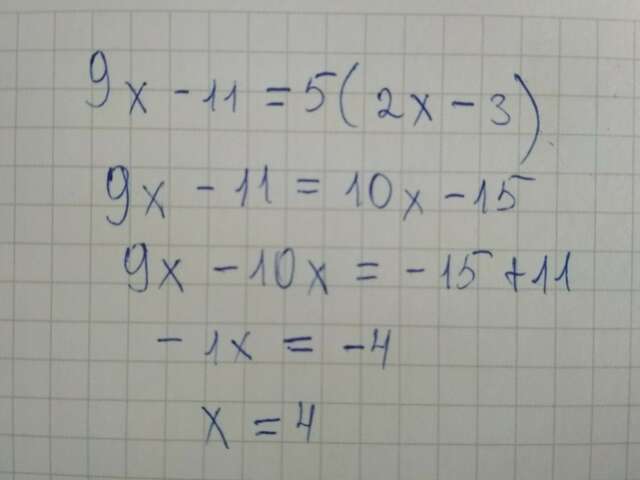 9x - 11 = 5(2x - 3)
9x - 11 = 10x - 15
9x - 10x = -15 + 11
-1x = -4
x = 4